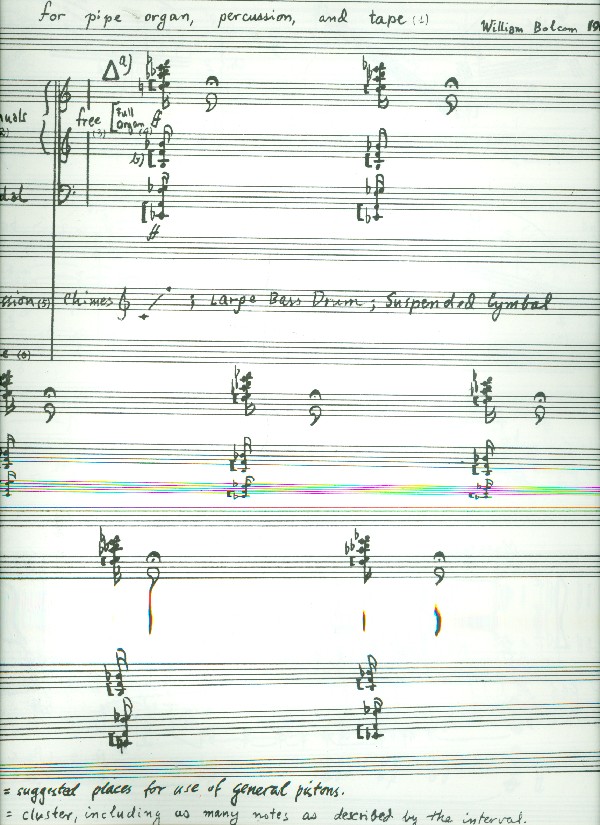 for pipe organ, percussion, and tape (1)
William Bolcom 19
a)
uals free (3) [Full Organ (4) ff
2)
b)
dal
ff
ssion (5) Chimes ; Large Bass Drum ; Suspended Cymbal
e (6)
= suggested places for use of general pistons.
= cluster, including as many notes as described by the interval.